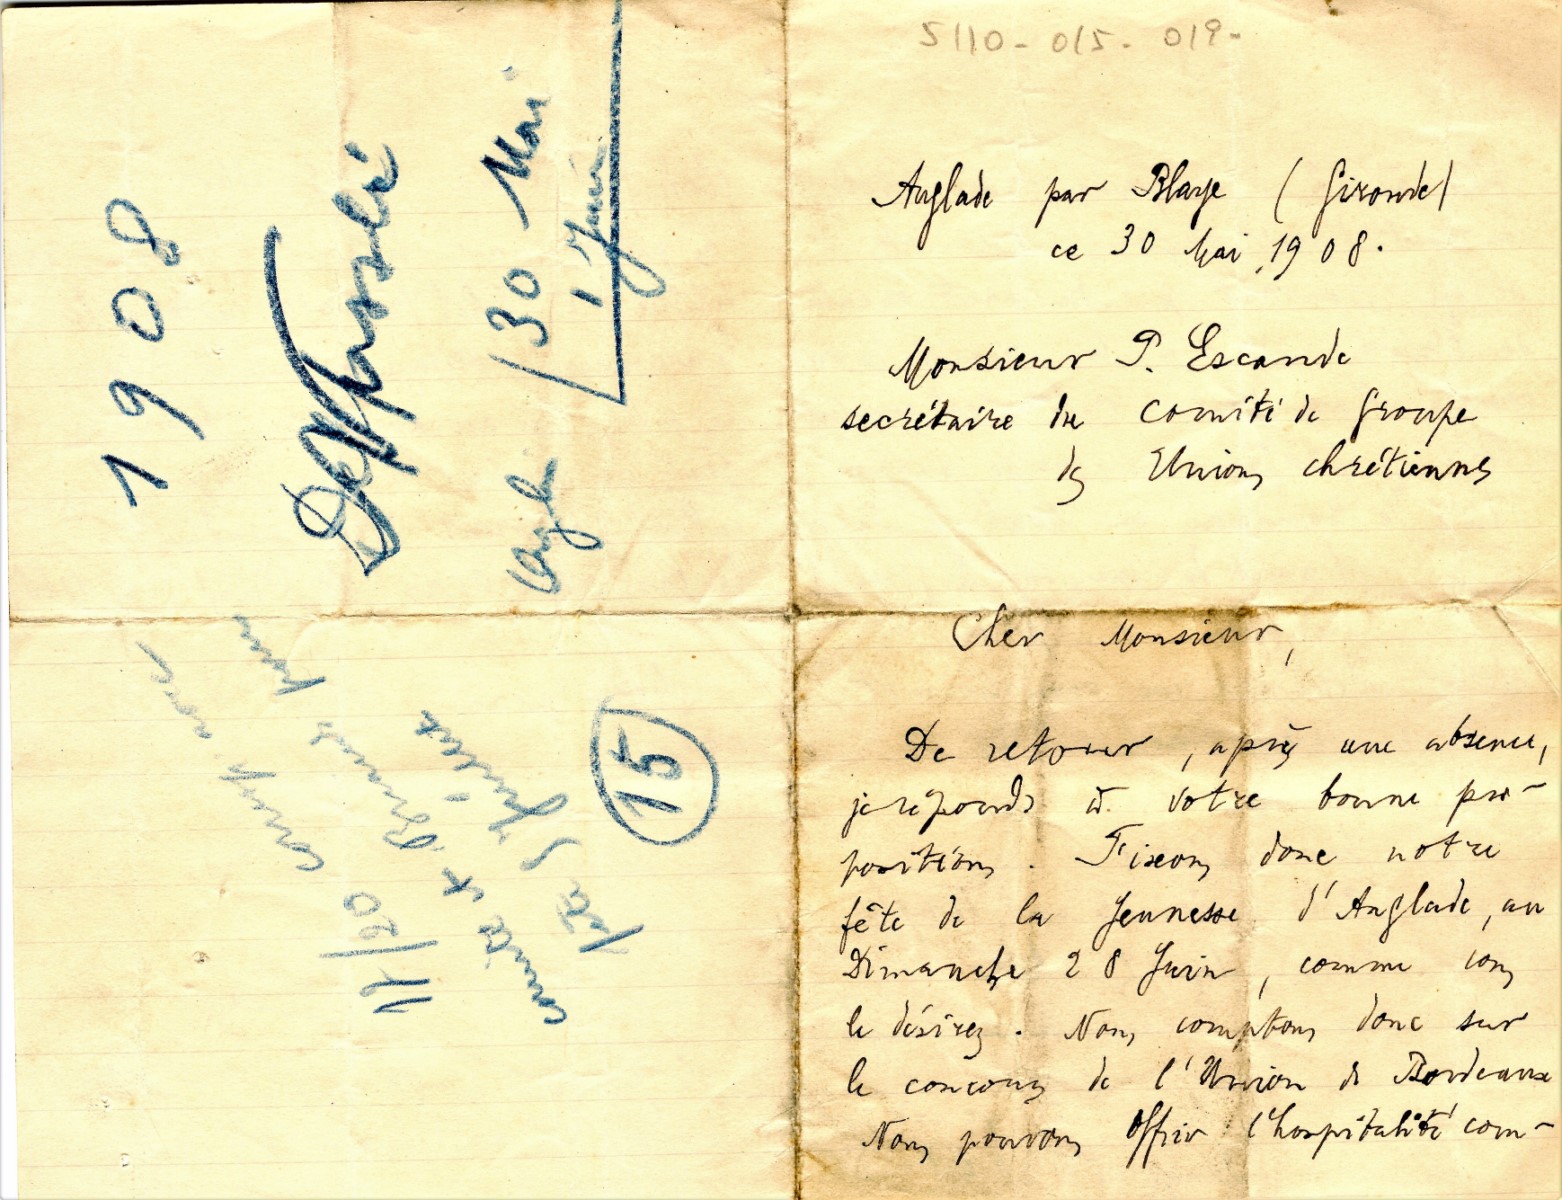 5110-015-019-
Anglade par Blaye (Gironde)
ce 30 Mai 1908.
Monsieur P. Escande
secrétaire du Comité de Groupe
des Unions chrétiennes
Cher Monsieur,
De retour, après une absence,
je réponds à votre bonne pro-
position. Fixons donc notre
fête de la Jeunesse d'Anglade, au
Dimanche 28 Juin, comme vous
le désirez. Nous comptons donc sur
le concours de l'Union de Bordeaux
Nous pouvons offrir l'hospitalité com-
1908
30 Mai
1 Juin
15